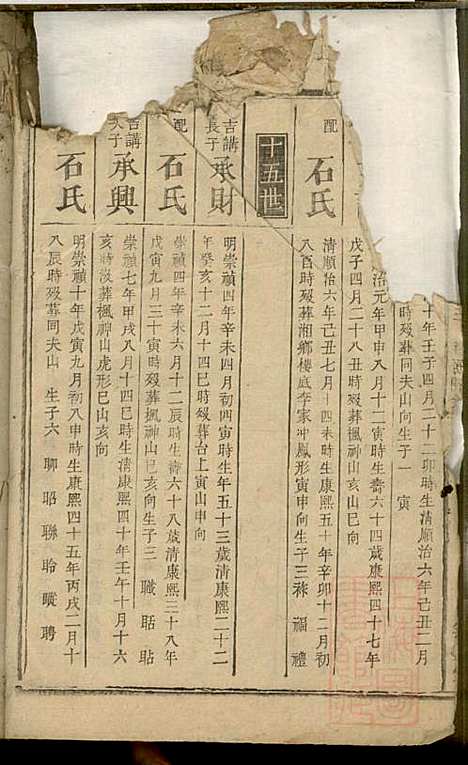 十年壬子四月二十二卯時生清順治六年己丑二月
時歿葬同夫山向生子一 寅
治元年甲申八月十二寅時生壽六十四歲康熙四十七年
戊子四月二十八丑時歿葬楓神山亥山巳向
配 石氏
清順治六年己丑七月十四未時生康熙五十年辛卯十二月初
八酉時歿葬湘鄉樓底李家冲鳳形寅申向生子三 祿 福 禮
十五世
吉講長子 承財
明崇禎四年辛未四月初四寅時生年五十三歲清康熙二十二
年癸亥十二月十四巳時歿葬台上寅山申向
配 石氏
崇禎四年辛未六月十二辰時生壽六十八歲清康熙三十八年
戊寅九月三十寅時歿葬楓神山巳亥向生子三 職 聒 聐
吉講次子 承興
崇禎七年甲戌八月十四巳時生清康熙四十年壬午十月十六
亥時歿葬楓神山虎形巳山亥向
石氏
明崇禎十年戊寅九月初八申時生康熙四十五年丙戌二月十
八辰時歿葬同夫山 生子六 聊 昭 聯 聆 聘